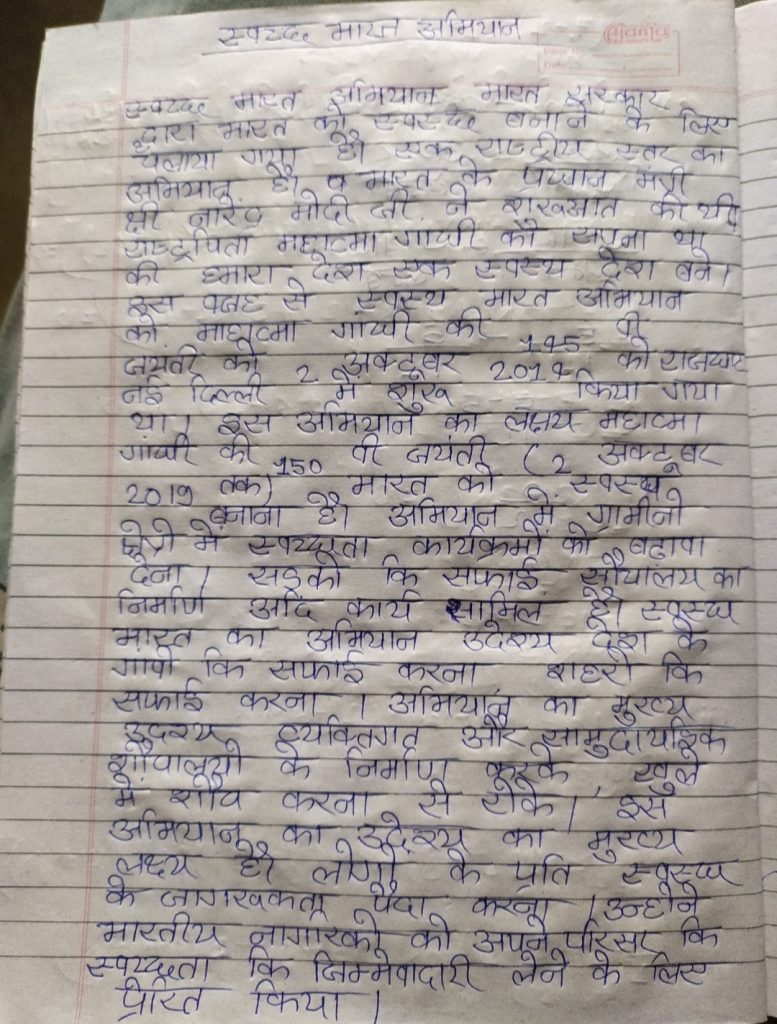 स्वच्छ भारत अभियान
स्वच्छ भारत अभियान भारत सरकार
द्वारा भारत को स्वच्छ बनाने के लिए
चलाया गया है। एक राष्ट्रीय स्तर का
अभियान है। व भारत के प्रधान मंत्री
श्री नरेंद्र मोदी जी ने शुरुआत की थी
राष्ट्रपिता महात्मा गांधी को सपना था
की हमारा देश एक स्वस्थ देश बने।
इस वजह से स्वस्थ भारत अभियान
को माहात्मा गांधी की 145 वी
जयंती को 2 अक्टूबर 2014 को राजघाट
नई दिल्ली में शुरू किया गया
था। इस अभियान का लक्ष्य महात्मा
गांधी की 150 वी जयंती (2 अक्टूबर
2019 तक) भारत को स्वस्थ
बनाना है। अभियान में ग्रामीनो
क्षेत्रो में स्वच्छता कार्यक्रमों को बढ़ावा
देना। सड़कों कि सफाई सौचालय का
निर्माण आदि कार्य सामिल है। स्वस्छ
भारत का अभियान उदेश्य देश के
गावो कि सफाई करना शहरो कि
सफाई करना। अभियान का मुख्य
उदेश्य व्यक्तिगत और सामुदायिक
शौचालयो के निर्माण करके, खुले
में शौच करना से रोके। इस
अभियान का उद्देश्य का मुख्य
लक्ष्य है। लोगो के प्रति स्वस्छ
के जागरुकता पैदा करना। उन्होने
भारतीय नागरिको को अपने परिसर कि
स्वच्छता कि जिम्मेवादारी लेने के लिए
प्रेरित किया।